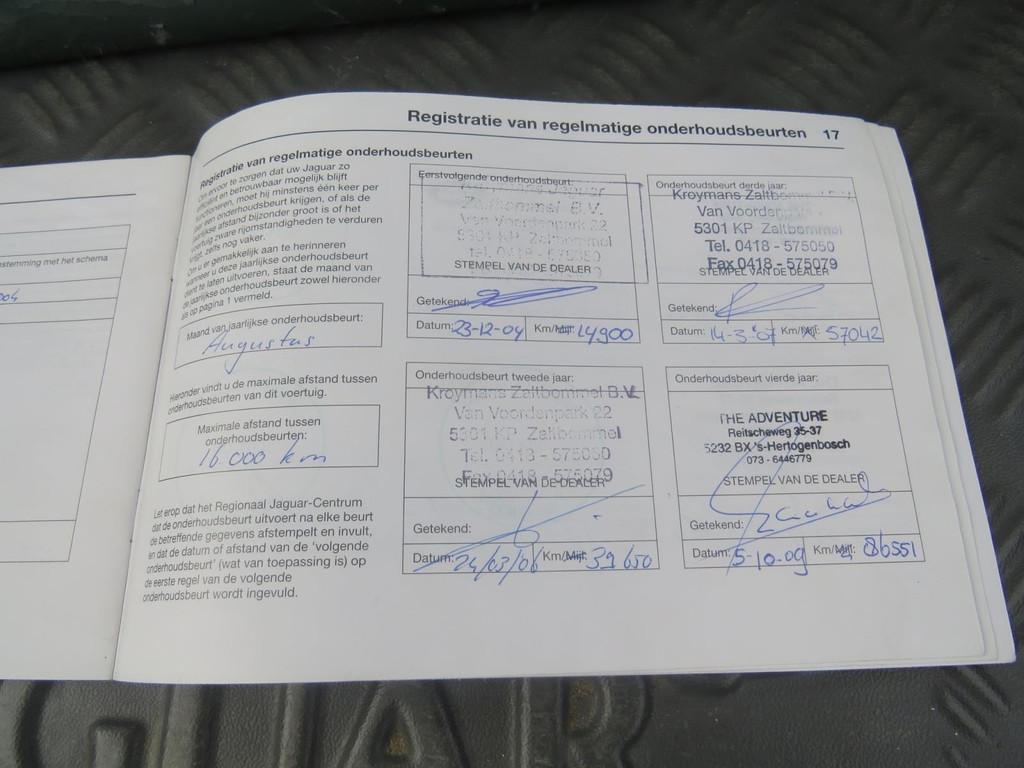 Registratie van regelmatige onderhoudsbeurten 17
stemming met het schema
Registratie van regelmatige onderhoudsbeurten
Om ervoor te zorgen dat uw Jaguar zo
efficiënt en betrouwbaar mogelijk blijft
functioneren, moet hij minstens één keer per
jaar een onderhoudsbeurt krijgen, of als de
jaarlijkse afstand bijzonder groot is of het
voertuig zware rijomstandigheden te verduren
krijgt, zelfs nog vaker.
Om u er gemakkelijk aan te herinneren
wanneer u deze jaarlijkse onderhoudsbeurt
dient te laten uitvoeren, staat de maand van
de jaarlijkse onderhoudsbeurt zowel hieronder
als op pagina 1 vermeld.
Maand van jaarlijkse onderhoudsbeurt:
Augustus
Hieronder vindt u de maximale afstand tussen
onderhoudsbeurten van dit voertuig.
Maximale afstand tussen
onderhoudsbeurten:
16.000 km
Let erop dat het Regionaal Jaguar-Centrum
dat de onderhoudsbeurt uitvoert na elke beurt
de betreffende gegevens afstempelt en invult,
en dat de datum of afstand van de 'volgende
onderhoudsbeurt' (wat van toepassing is) op
de eerste regel van de volgende
onderhoudsbeurt wordt ingevuld.
Eerstvolgende onderhoudsbeurt:
Kroymans Jaguar
Zaltbommel B.V.
Van Voordenpark 22
5301 KP Zaltbommel
tel. 0418 - 575050
STEMPEL VAN DE DEALER
Getekend:
Datum: 23-12-04 Km/Mijl: 14900
Onderhoudsbeurt tweede jaar:
Kroymans Zaltbommel B.V.
Van Voordenpark 22
5301 KP Zaltbommel
Tel. 0418 - 575050
Fax 0418 - 575079
STEMPEL VAN DE DEALER
Getekend:
Datum: 24/03/06 Km/Mijl: 39650
Onderhoudsbeurt derde jaar:
Kroymans Zaltbommel B.V.
Van Voorden
5301 KP Zaltbommel
Tel. 0418 - 575050
Fax 0418 - 575079
STEMPEL VAN DE DEALER
Getekend:
Datum: 14-3-07 Km/Mijl: 57042
Onderhoudsbeurt vierde jaar:
THE ADVENTURE
Reitscheweg 35-37
5232 BX 's-Hertogenbosch
073 - 6446779
STEMPEL VAN DE DEALER
Getekend:
Datum: 5-10-09 Km/Mijl: 86551